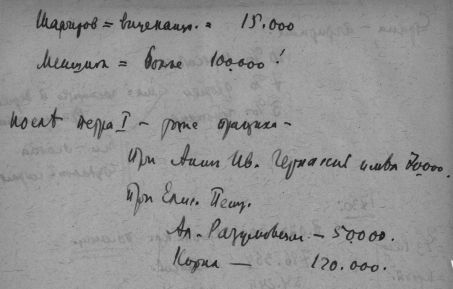 Шафиров = вицеканц. = 15.000
Меншик = более 100.000!
После Петра I — роже
При Анне Ив. имел 70.000.
При Елис. Петр.
Ал. Разумовский — 50000.
Корна — 120.000.